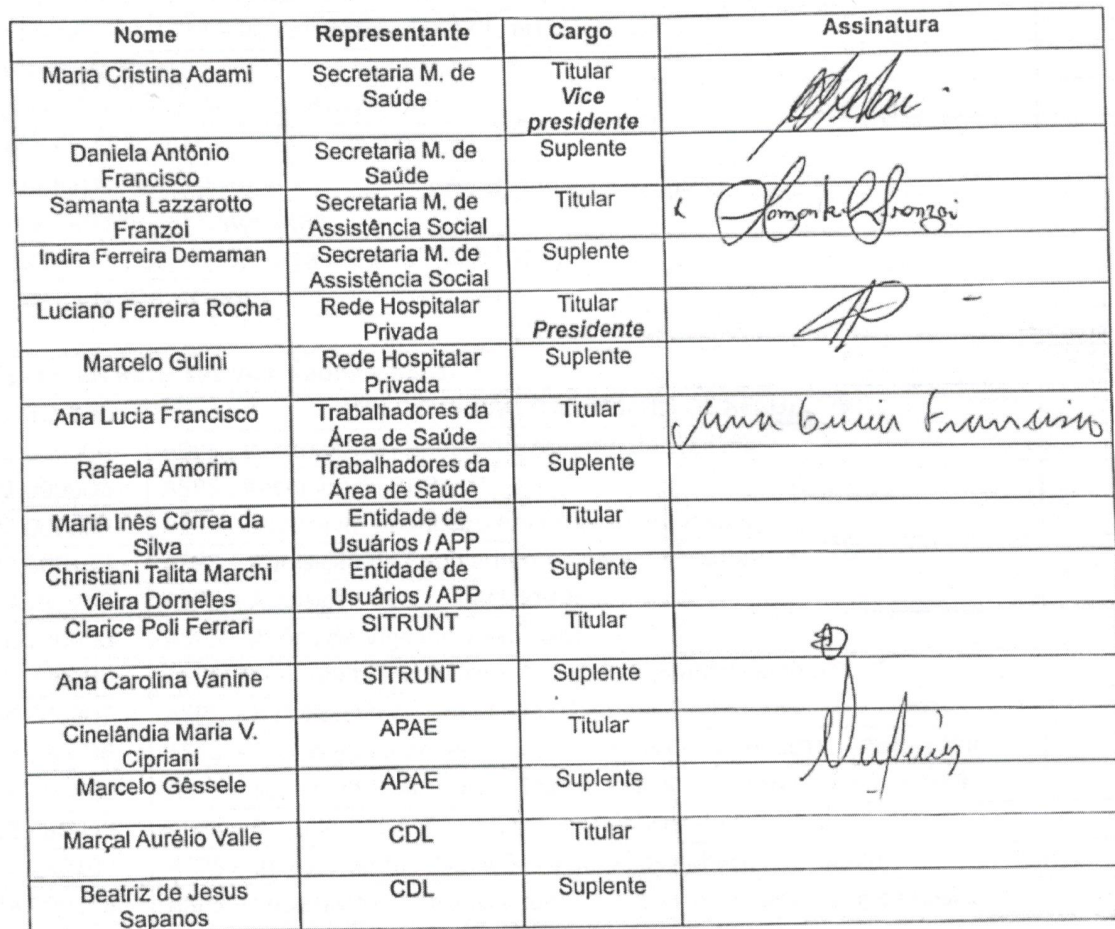 Nome Representante Cargo Assinatura
Maria Cristina Adami Secretaria M. de Saúde Titular Vice presidente
Daniela Antônio Francisco Secretaria M. de Saúde Suplente
Samanta Lazzarotto Franzoi Secretaria M. de Assistência Social Titular Samanta L Franzoi
Indira Ferreira Demaman Secretaria M. de Assistência Social Suplente
Luciano Ferreira Rocha Rede Hospitalar Privada Titular Presidente
Marcelo Gulini Rede Hospitalar Privada Suplente
Ana Lucia Francisco Trabalhadores da Área de Saúde Titular Ana Lucia Francisco
Rafaela Amorim Trabalhadores da Área de Saúde Suplente
Maria Inês Correa da Silva Entidade de Usuários / APP Titular
Christiani Talita Marchi Vieira Dorneles Entidade de Usuários / APP Suplente
Clarice Poli Ferrari SITRUNT Titular
Ana Carolina Vanine SITRUNT Suplente
Cinelândia Maria V. Cipriani APAE Titular
Marcelo Gêssele APAE Suplente
Marçal Aurélio Valle CDL Titular
Beatriz de Jesus Sapanos CDL Suplente